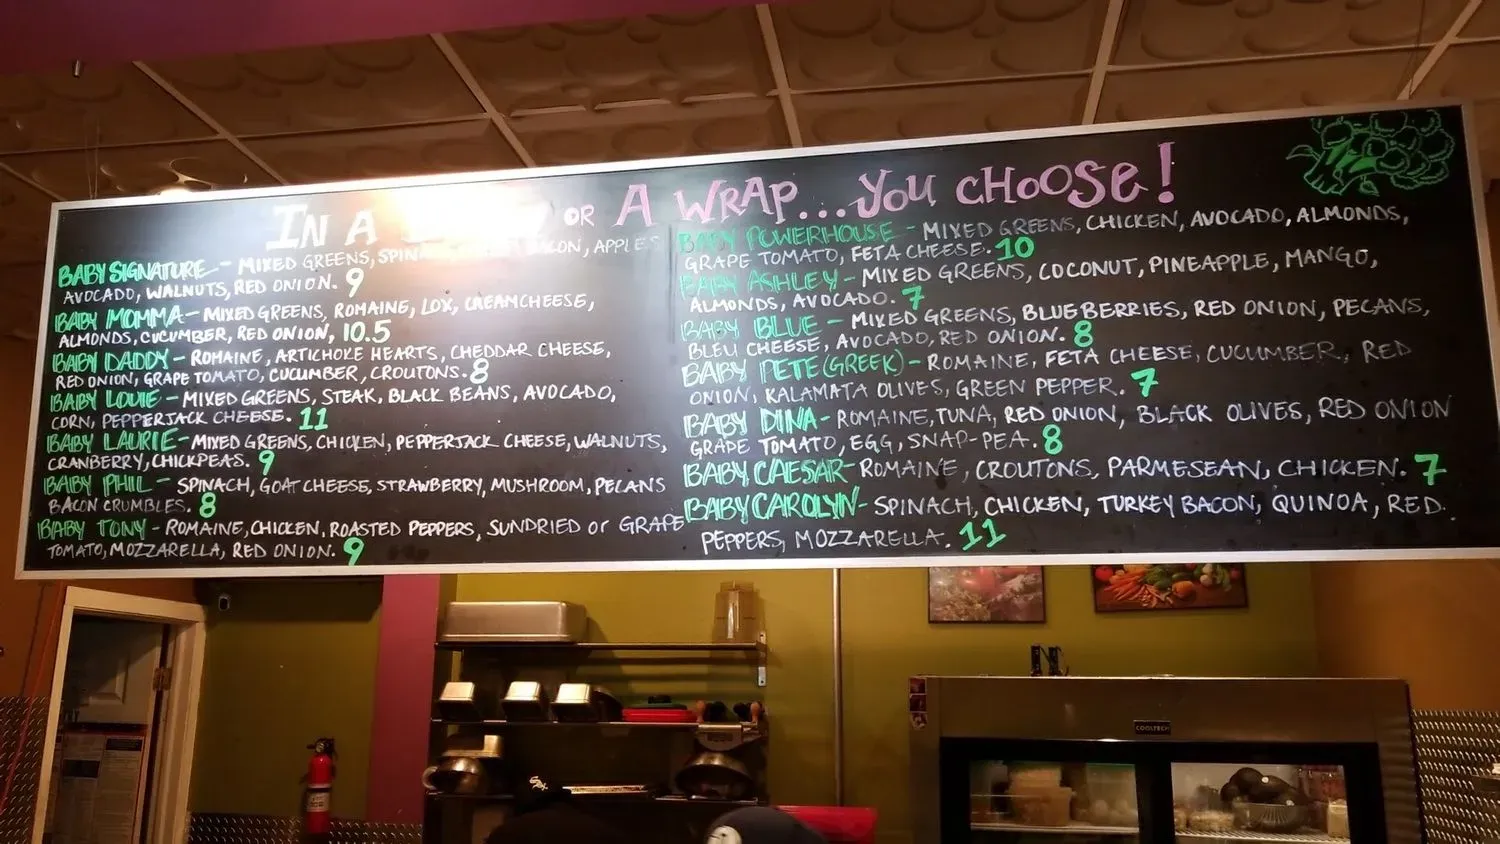 IN A OR A WRAP... YOU CHOOSE!
BABY SIGNATURE - MIXED GREENS, BACON, APPLES
AVOCADO, WALNUTS, RED ONION. 9
BABY MOMMA - MIXED GREENS, ROMAINE, LOX, CREAMCHEESE,
ALMONDS, CUCUMBER, RED ONION, 10.5
BABY DADDY - ROMAINE, ARTICHOKE HEARTS, CHEDDAR CHEESE,
RED ONION, GRAPE TOMATO, CUCUMBER, CROUTONS. 8
BABY LOUIE - MIXED GREENS, STEAK, BLACK BEANS, AVOCADO,
CORN, PEPPERJACK CHEESE. 11
BABY LAURIE - MIXED GREENS, CHICKEN, PEPPERJACK CHEESE, WALNUTS,
CRANBERRY, CHICKPEAS. 9
BABY PHIL - SPINACH, GOAT CHEESE, STRAWBERRY, MUSHROOM, PECANS
BACON CRUMBLES. 8
BABY TONY - ROMAINE, CHICKEN, ROASTED PEPPERS, SUNDRIED or GRAPE
TOMATO, MOZZARELLA, RED ONION. 9
BABY POWERHOUSE - MIXED GREENS, CHICKEN, AVOCADO, ALMONDS,
GRAPE TOMATO, FETA CHEESE. 10
BABY ASHLEY - MIXED GREENS, COCONUT, PINEAPPLE, MANGO,
ALMONDS, AVOCADO. 7
BABY BLUE - MIXED GREENS, BLUEBERRIES, RED ONION, PECANS,
BLEU CHEESE, AVOCADO, RED ONION. 8
BABY PETE (GREEK) - ROMAINE, FETA CHEESE, CUCUMBER, RED
ONION, KALAMATA OLIVES, GREEN PEPPER. 7
BABY DINA - ROMAINE, TUNA, RED ONION, BLACK OLIVES, RED ONION
GRAPE TOMATO, EGG, SNAP-PEA. 8
BABY CAESAR - ROMAINE, CROUTONS, PARMESEAN, CHICKEN. 7
BABY CAROLYN - SPINACH, CHICKEN, TURKEY BACON, QUINOA, RED
PEPPERS, MOZZARELLA. 11
COOLTECH